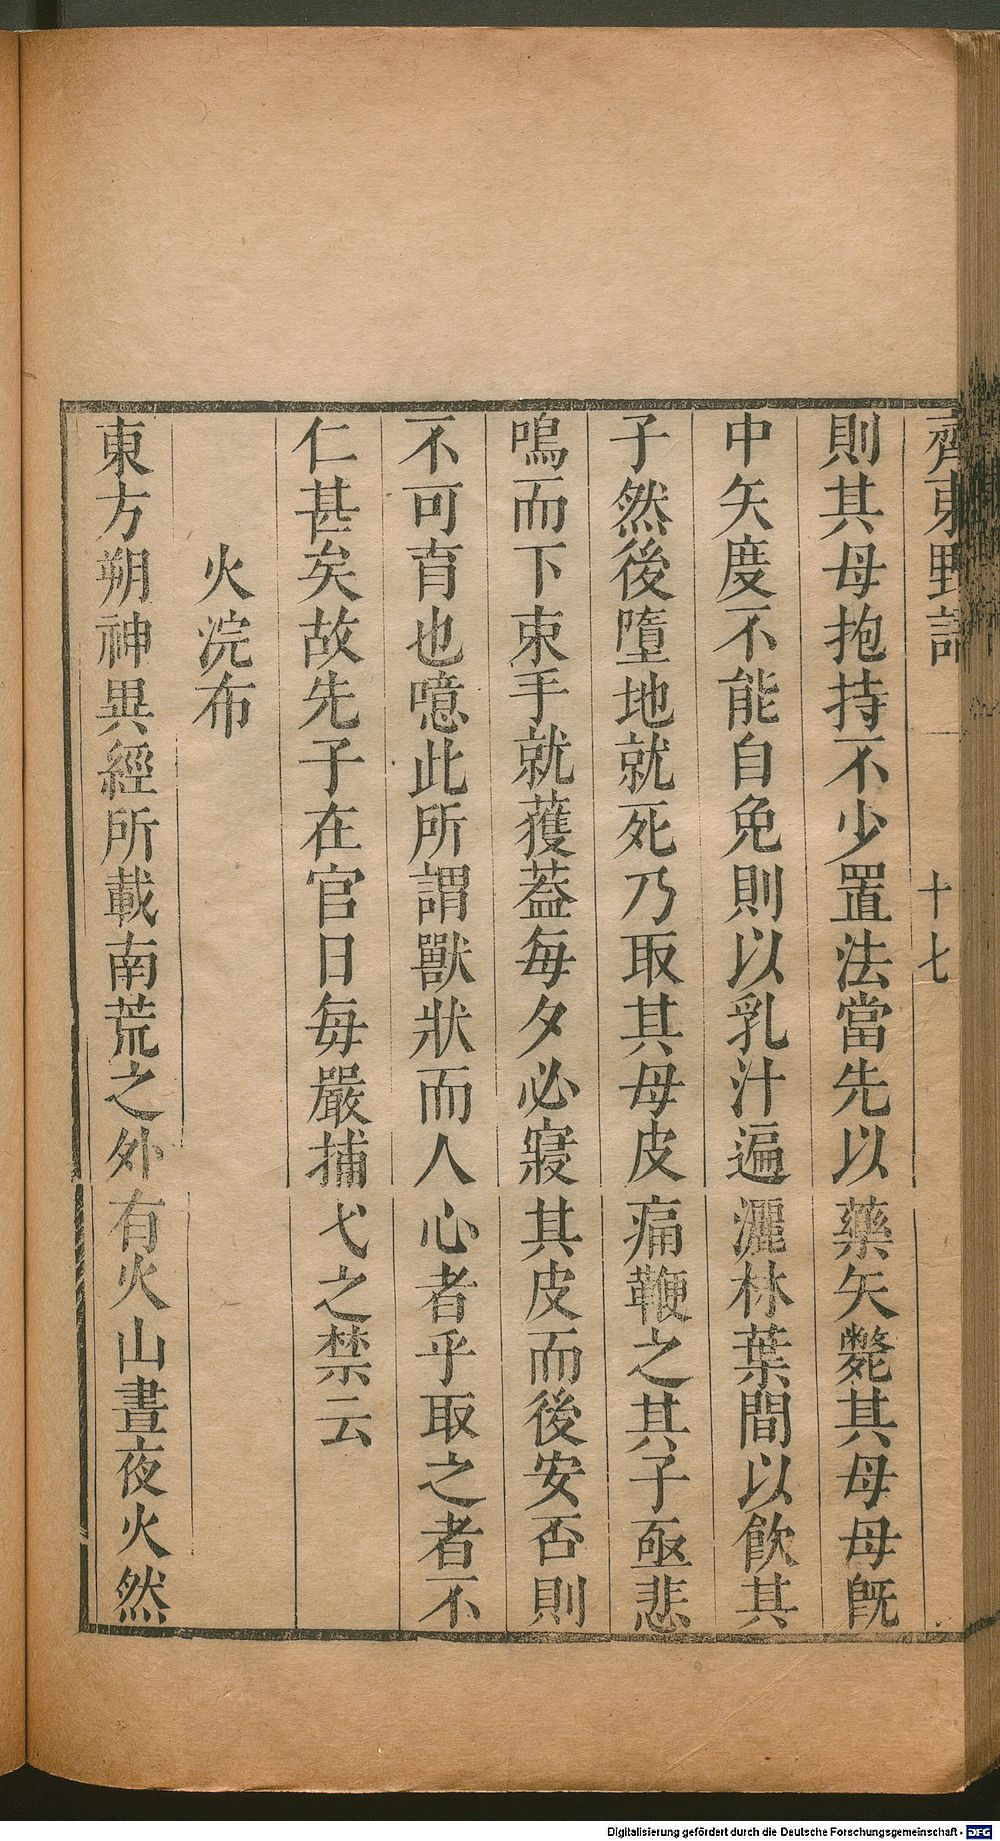 齊東野語 十七
則其母抱持不少置法當先以藥矢斃其母母旣
中矢度不能自免則以乳汁遍灑林葉間以飮其
子然後墮地就死乃取其母皮痛鞭之其子亟悲
鳴而下束手就獲葢每夕必寢其皮而後安否則
不可育也噫此所謂獸狀而人心者乎取之者不
仁甚矣故先子在官日每嚴捕弋之禁云
火浣布
東方朔神異經所載南荒之外有火山晝夜火然
Digitalisierung gefördert durch die Deutsche Forschungsgemeinschaft - DFG